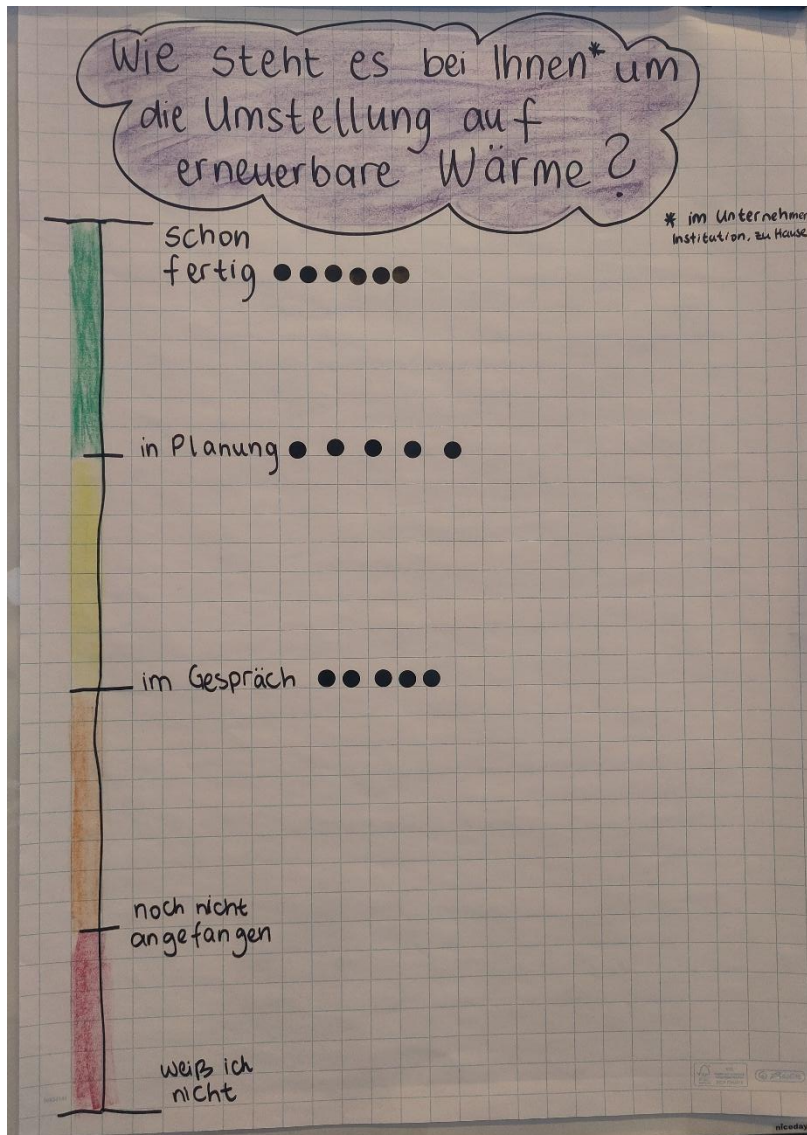 Wie steht es bei Ihnen* um
die Umstellung auf
erneuerbare Wärme?
* im Unternehmen
Institution, zu Hause
schon
fertig
in Planung
im Gespräch
noch nicht
angefangen
weiß ich
nicht